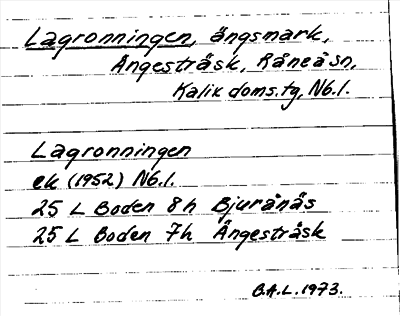 Lagronningen, ängsmark,
Ängesträsk, Råneå sn,
Kalix doms.tg, Nb.l.
Lagronningen
ek (1952) Nb.l.
25 L Boden 8h Bjurånäs
25 L Boden 7h Ängesträsk
B.A.L. 1973.